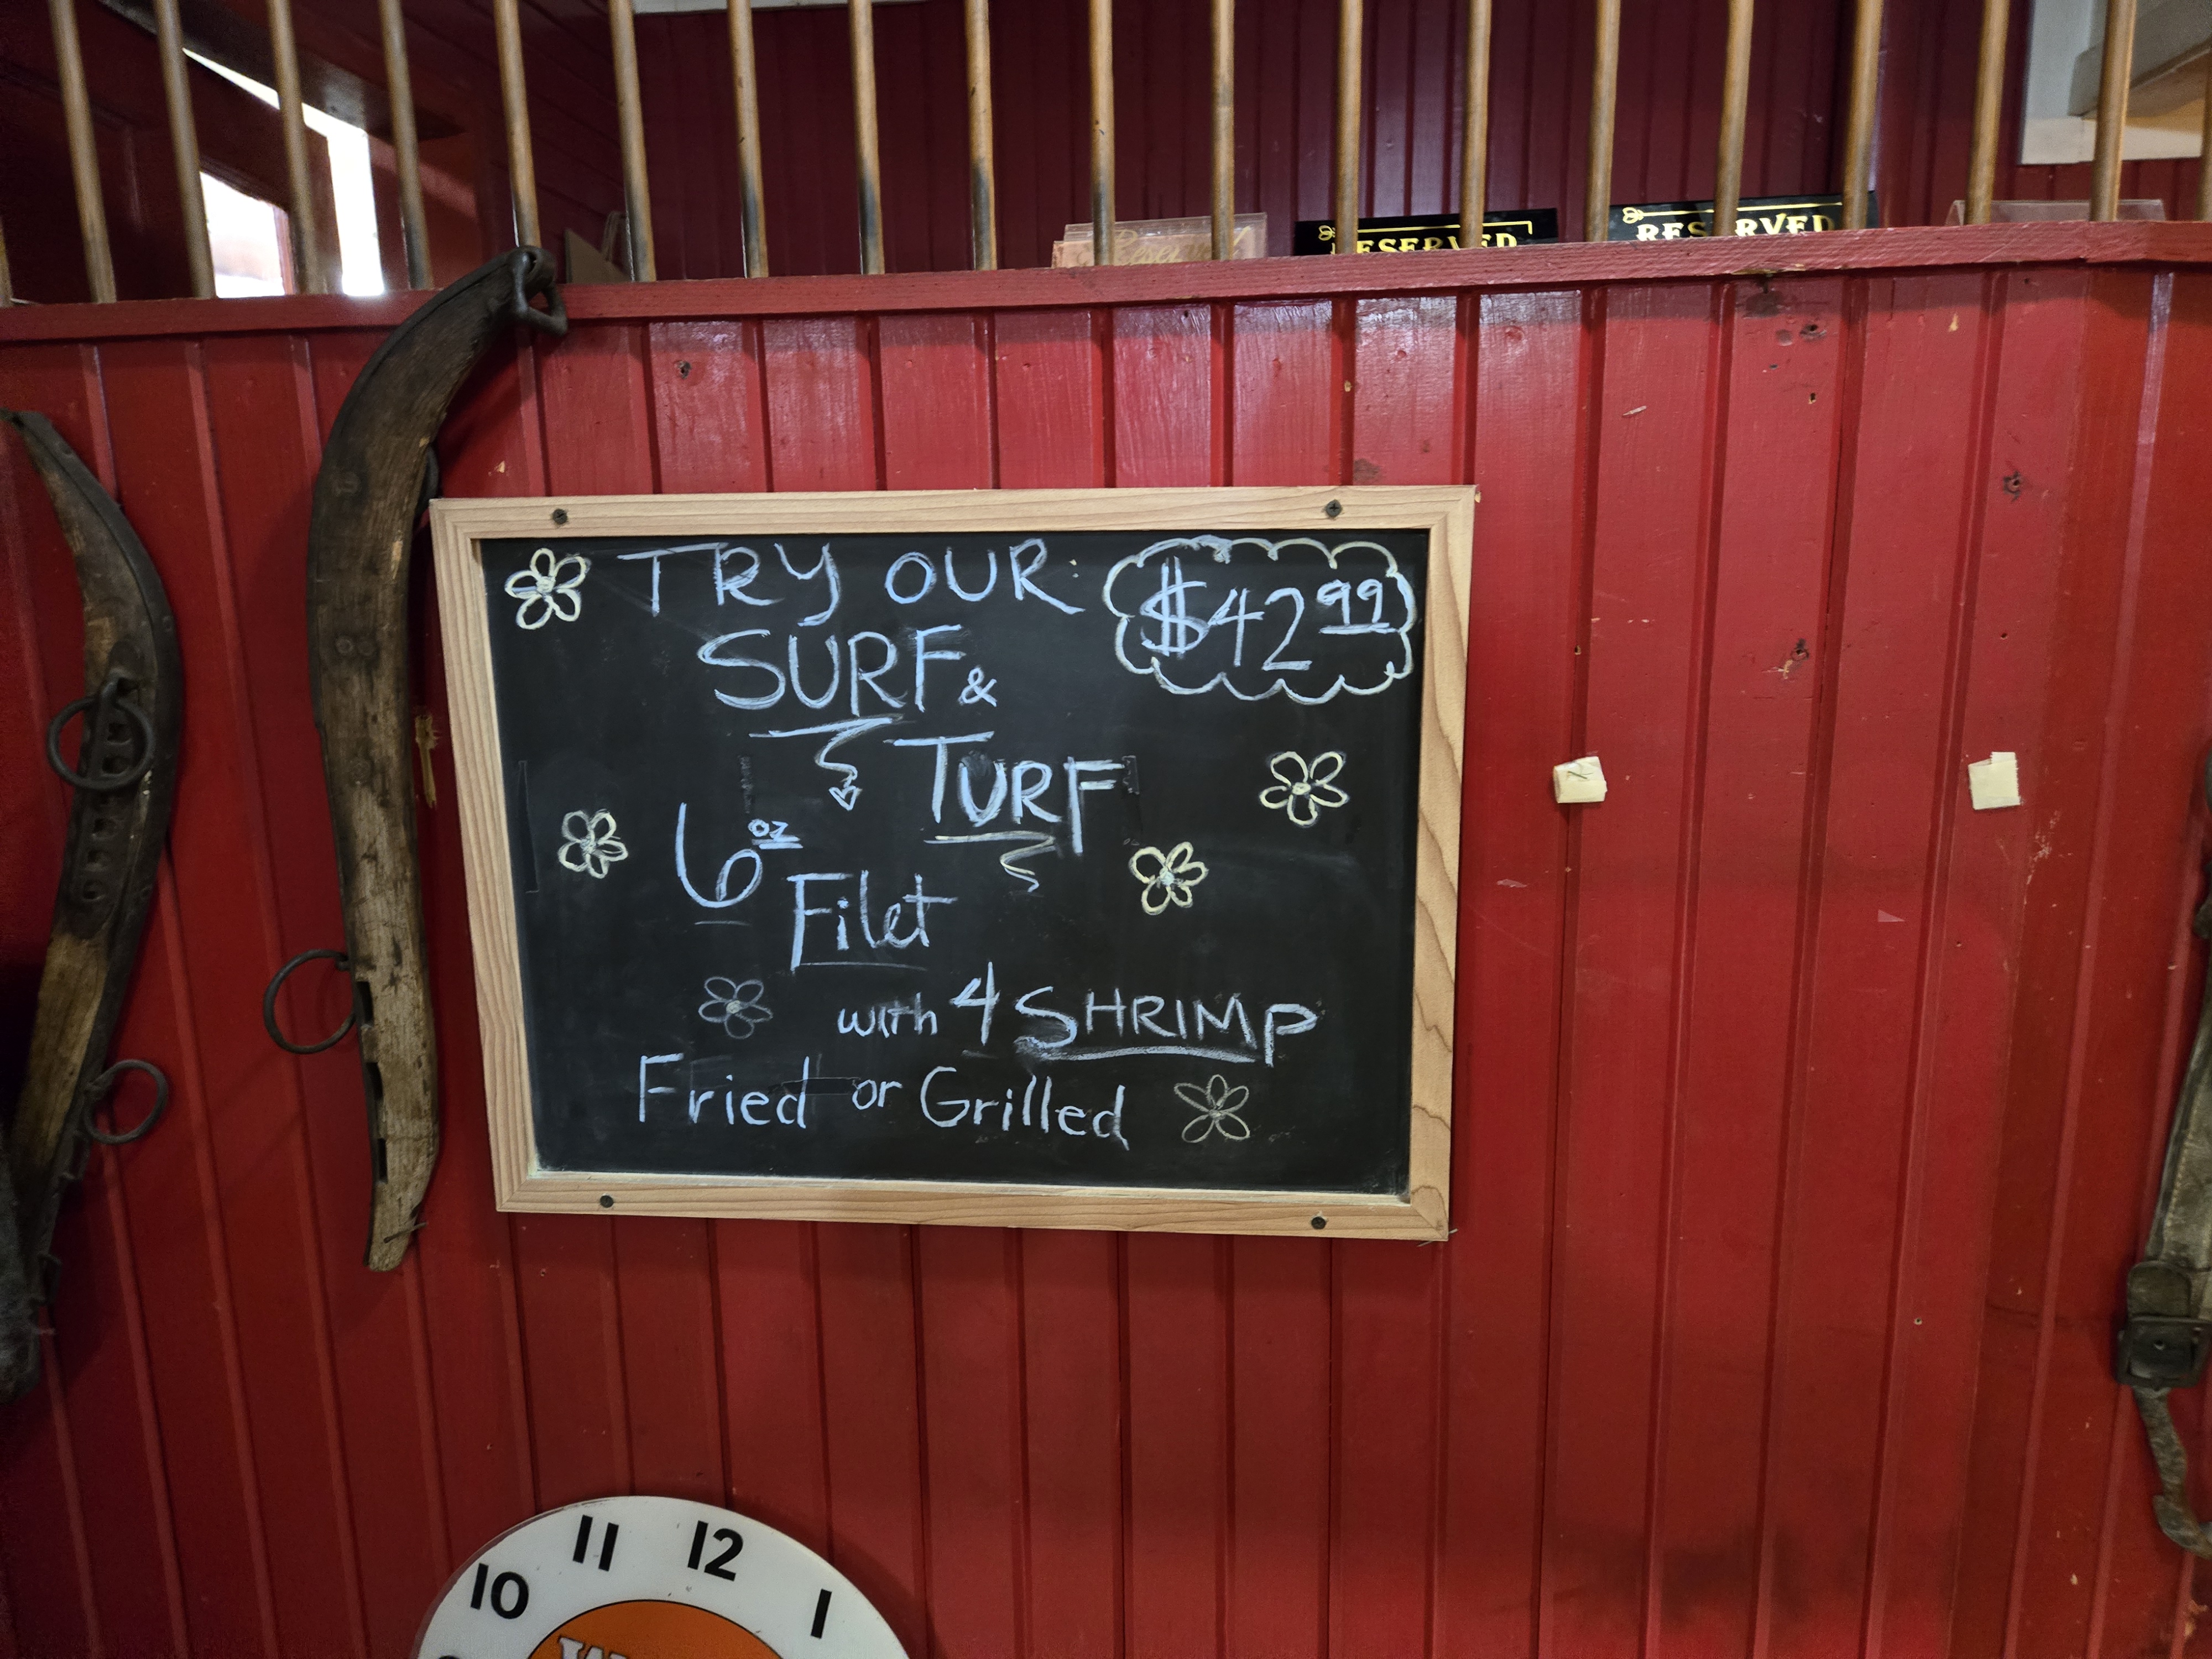 RESERVED
RESERVED
TRY OUR
$42 99
SURF &
TURF
6 oz
Filet
with 4 SHRIMP
Fried or Grilled
10 11 12 1